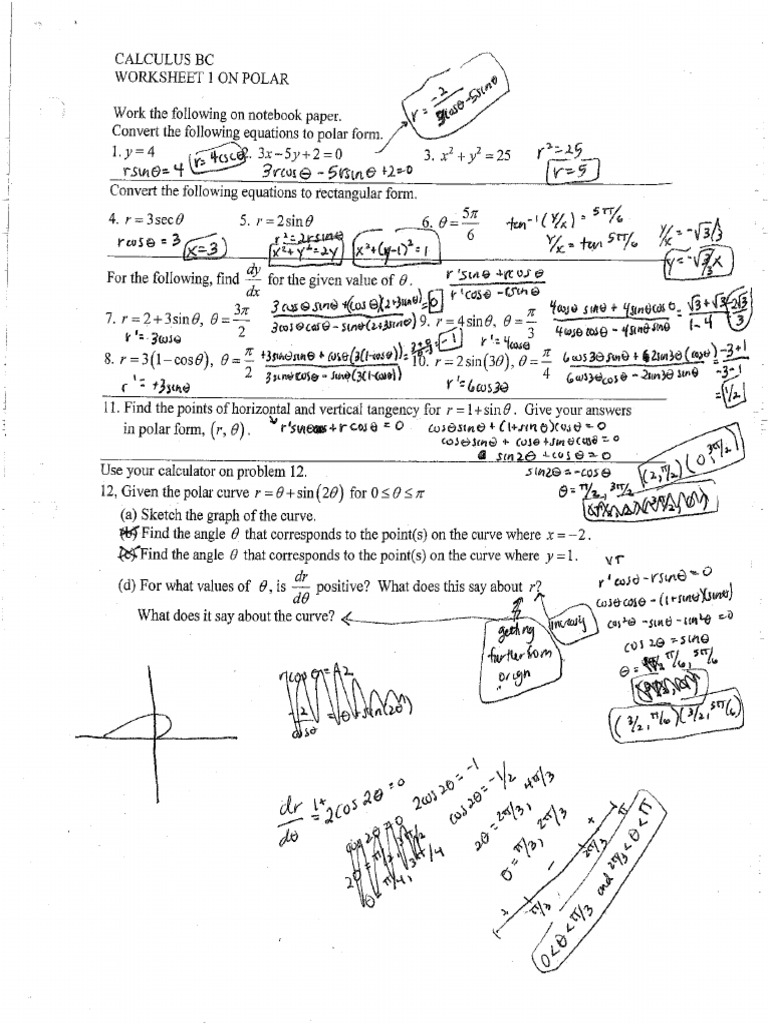 CALCULUS BC
WORKSHEET 1 ON POLAR
Work the following on notebook paper.
Convert the following equations to polar form.
r = -2/(3cosθ-5sinθ)
1. y = 4 2. 3x - 5y + 2 = 0 3. x² + y² = 25 r²=25
rsinθ=4 r=4cscθ 3rcosθ - 5rsinθ +2=0 r=5
Convert the following equations to rectangular form.
4. r = 3secθ 5. r = 2sinθ 6. θ = 5π/6 tan⁻¹(y/x) = 5π/6
rcosθ = 3 x=3 r²=2rsinθ x²+y²=2y x²+(y-1)²=1 y/x = tan 5π/6 y/x = -√3/3
y = -√3/3 x
For the following, find dy/dx for the given value of θ. r'sinθ+rcosθ / r'cosθ-rsinθ
7. r = 2 + 3sinθ, θ = 3π/2 3cosθsinθ+(cosθ)(2+3sinθ) / 3cosθcosθ - sinθ(2+3sinθ) = 0 9. r = 4sinθ, θ = π/3 4cosθ sinθ + 4sinθcosθ / 4cosθcosθ - 4sinθsinθ = √3+√3 / 1-4 = -2√3/3
r'=3cosθ r'=4cosθ
8. r = 3(1-cosθ), θ = π/2 +3sinθsinθ + cosθ(3(1-cosθ)) / 3sinθcosθ - sinθ(3(1-cosθ)) = -1 10. r = 2sin(3θ), θ = π/4 6cos3θsinθ + 2sin3θ(cosθ) / 6cos3θcosθ - 2sin3θ sinθ = -3+1 / -3-1
r'=+3sinθ r'=6cos3θ = 1/2
11. Find the points of horizontal and vertical tangency for r = 1 + sinθ. Give your answers
in polar form, (r, θ). r'sinθ + rcosθ = 0 cosθsinθ + (1+sinθ)cosθ = 0
cosθsinθ + cosθ + sinθcosθ = 0
sin2θ + cosθ = 0
Use your calculator on problem 12. sin2θ = -cosθ (2, π/2) (0, 3π/2)
12, Given the polar curve r = θ + sin(2θ) for 0 ≤ θ ≤ π θ = π/2, 3π/2
(a) Sketch the graph of the curve.
Find the angle θ that corresponds to the point(s) on the curve where x = -2.
Find the angle θ that corresponds to the point(s) on the curve where y = 1. VT
(d) For what values of θ, is dr/dθ positive? What does this say about r? r'cosθ - rsinθ = 0
What does it say about the curve? increasing cosθcosθ - (1+sinθ)(sinθ)
getting further from origin cos²θ - sinθ - sin²θ = 0
cos2θ = sinθ
θ = π/6, 5π/6
(3/2, π/6) (3/2, 5π/6)
dr/dθ = 1+2cos2θ = 0 2cos2θ = -1
cos2θ = -1/2
2θ = 2π/3, 4π/3
θ = π/3, 2π/3
π/3 - 2π/3 + π
0<θ<π/3 and 2π/3<θ<π